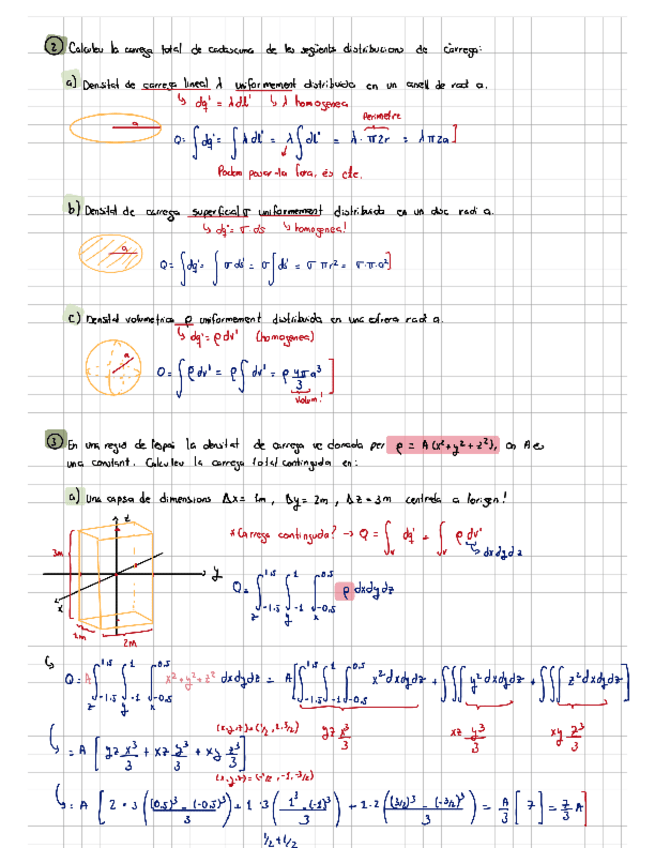 2 Calculeu la carrega total de cadascuna de les següents distribucions de càrrega:
a) Densitat de carrega lineal λ uniformement distribuida en un anell de rad a.
↳ dq' = λdl' ↳ λ homogenea
Perímetre
a
Q = ∫dq' = ∫λdl' = λ∫dl' = λ · π2r = λπ2a]
Podem posar-la fora, és cte.
b) Densitat de carrega superficial σ uniformement distribuida en un disc radi a.
↳ dq' = σ ds ↳ homogenea!
a
Q = ∫dq' = ∫σ ds' = σ∫ds' = σ π r² = σ·π·a²]
c) Densitat volumetrica ρ uniformement distribuida en una esfera rad a.
↳ dq' = ρdv' (homogenea)
a
Q = ∫ρdv' = ρ∫dv' = ρ 4π/3 a³]
volum!
3 En una regio de l'espai la densitat de carrega ve donada per ρ = A(x²+y²+z²), on A es
una constant. Calculeu la carrega total continguda en:
a) Una capsa de dimensions Δx = 1m, Δy = 2m, Δz = 3m centrada a l'origen!
z
* Carrega continguda? → Q = ∫v dq' = ∫v ρ dv'
↳ dxdydz
3m
y
x
1m
2m
Q = ∫-1.5^1.5 ∫-1^1 ∫-0.5^0.5 ρ dxdydz
z y x
↳ Q = A∫-1.5^1.5 ∫-1^1 ∫-0.5^0.5 x²+y²+z² dxdydz = A[∫-1.5^1.5 ∫-1^1 ∫-0.5^0.5 x²dxdydz + ∫∫∫y²dxdydz + ∫∫∫z²dxdydz]
z y x
(x,y,z) = (1/2, 1, 3/2) yz x³/3 xz y³/3 xy z³/3
↳ = A [yz x³/3 + xz y³/3 + xy z³/3]
(x,y,z) = (-1/2, -1, -3/2)
↳ = A [2·3 ((0.5)³ - (-0.5)³)/3) + 1·3 (1³ - (-1)³)/3) + 1·2 ((3/2)³ - (-3/2)³)/3) = A/3 [7] = 7/3 A]
1/2 + 1/2